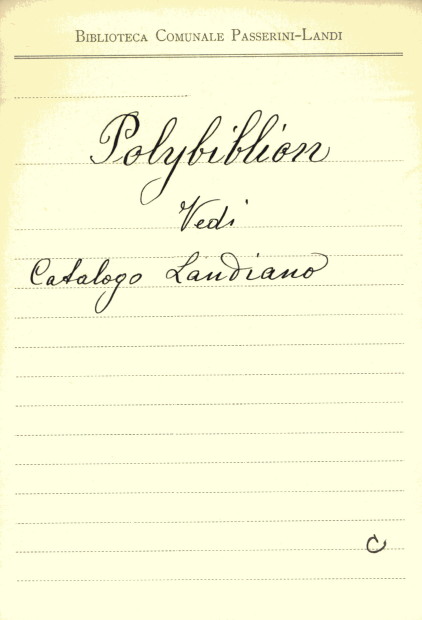 Biblioteca Comunale Passerini-Landi
Polybiblion
Vedi
Catalogo Landiano
C